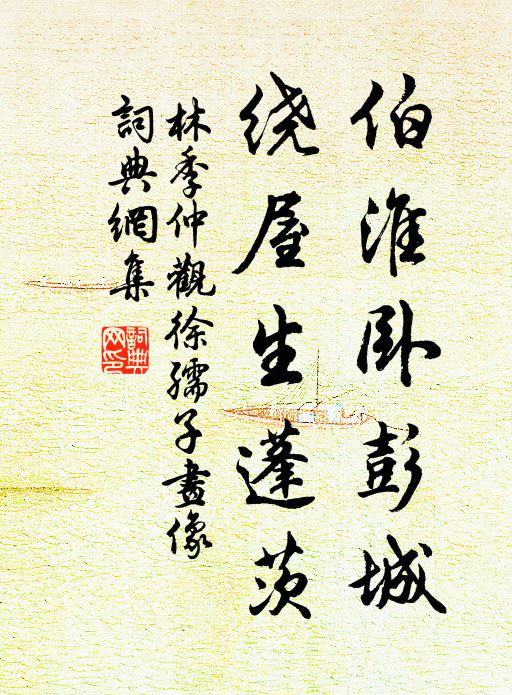 伯淮卧彭城
绕屋生蓬茨
林季仲觀徐孺子畫像
詞典網集
詞典
网印